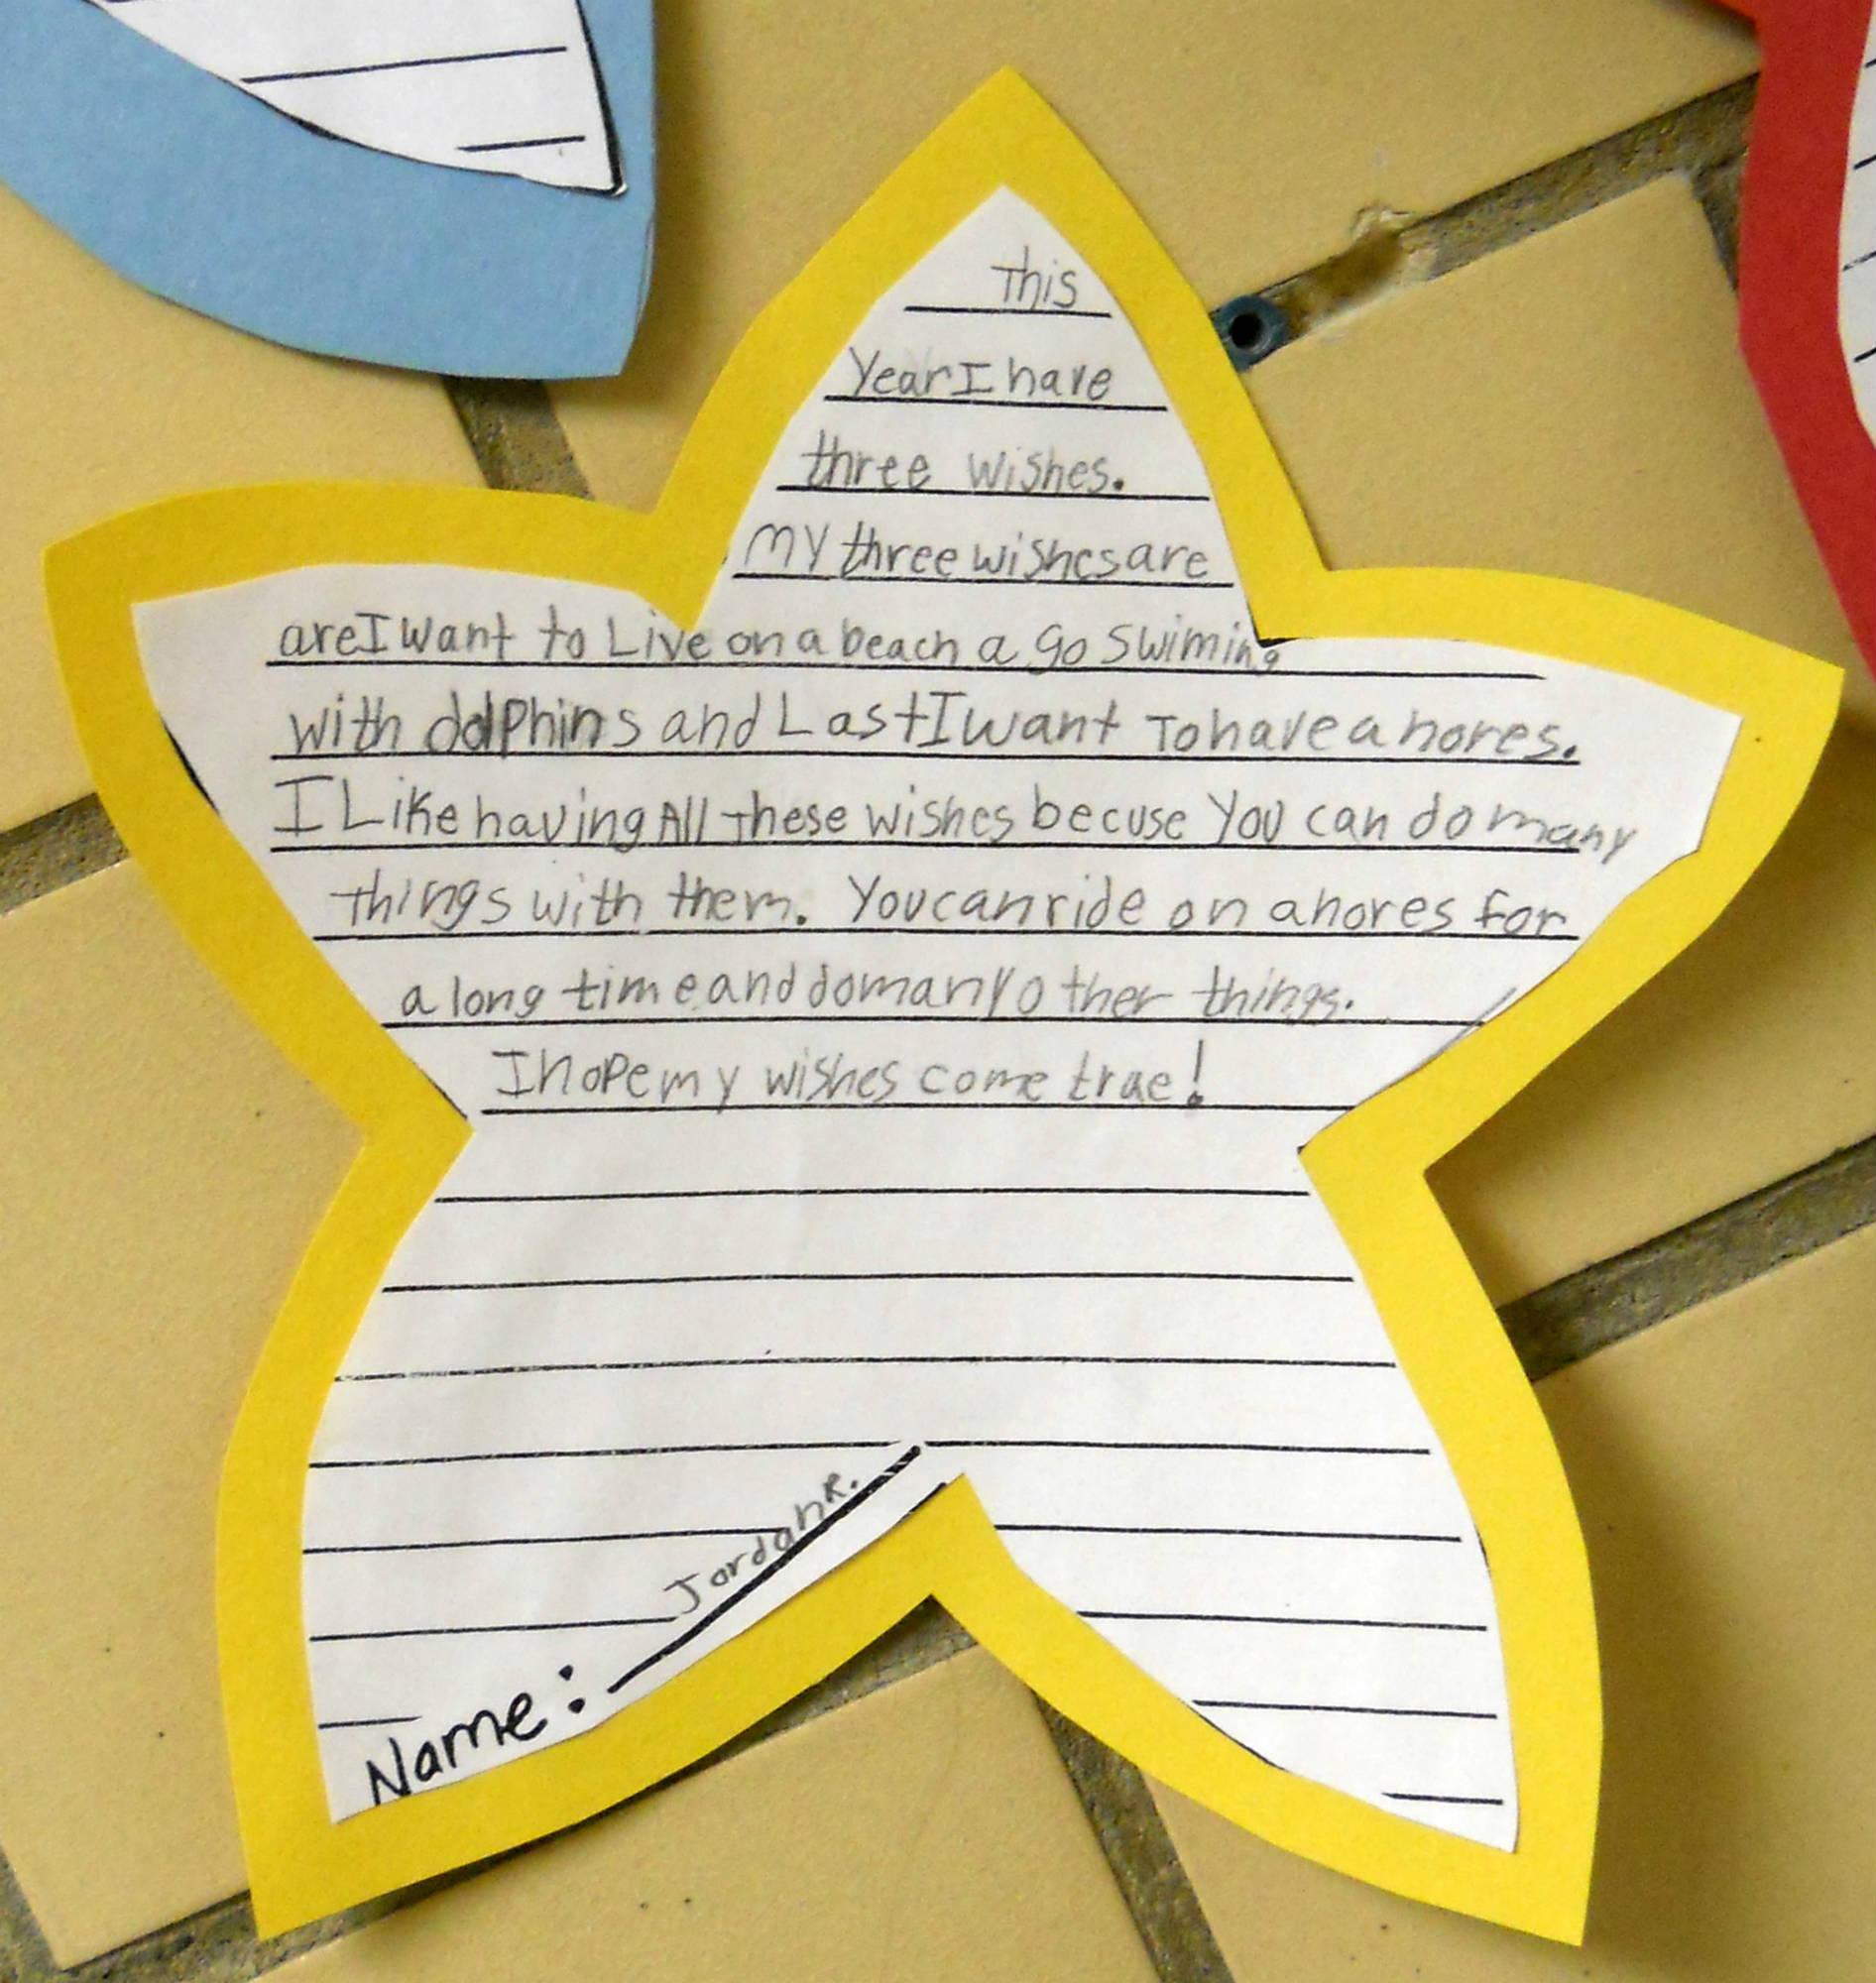 This
Year I have
three wishes.
My three wishes are
are I want to Live on a beach a go swiming
with dolphins and Last I want To have a hores.
I Like having All These wishes becuse You can do many
things with them. You can ride on a hores for
a long time and do many other things.
I hope my wishes come true!
Name: Jordan R.